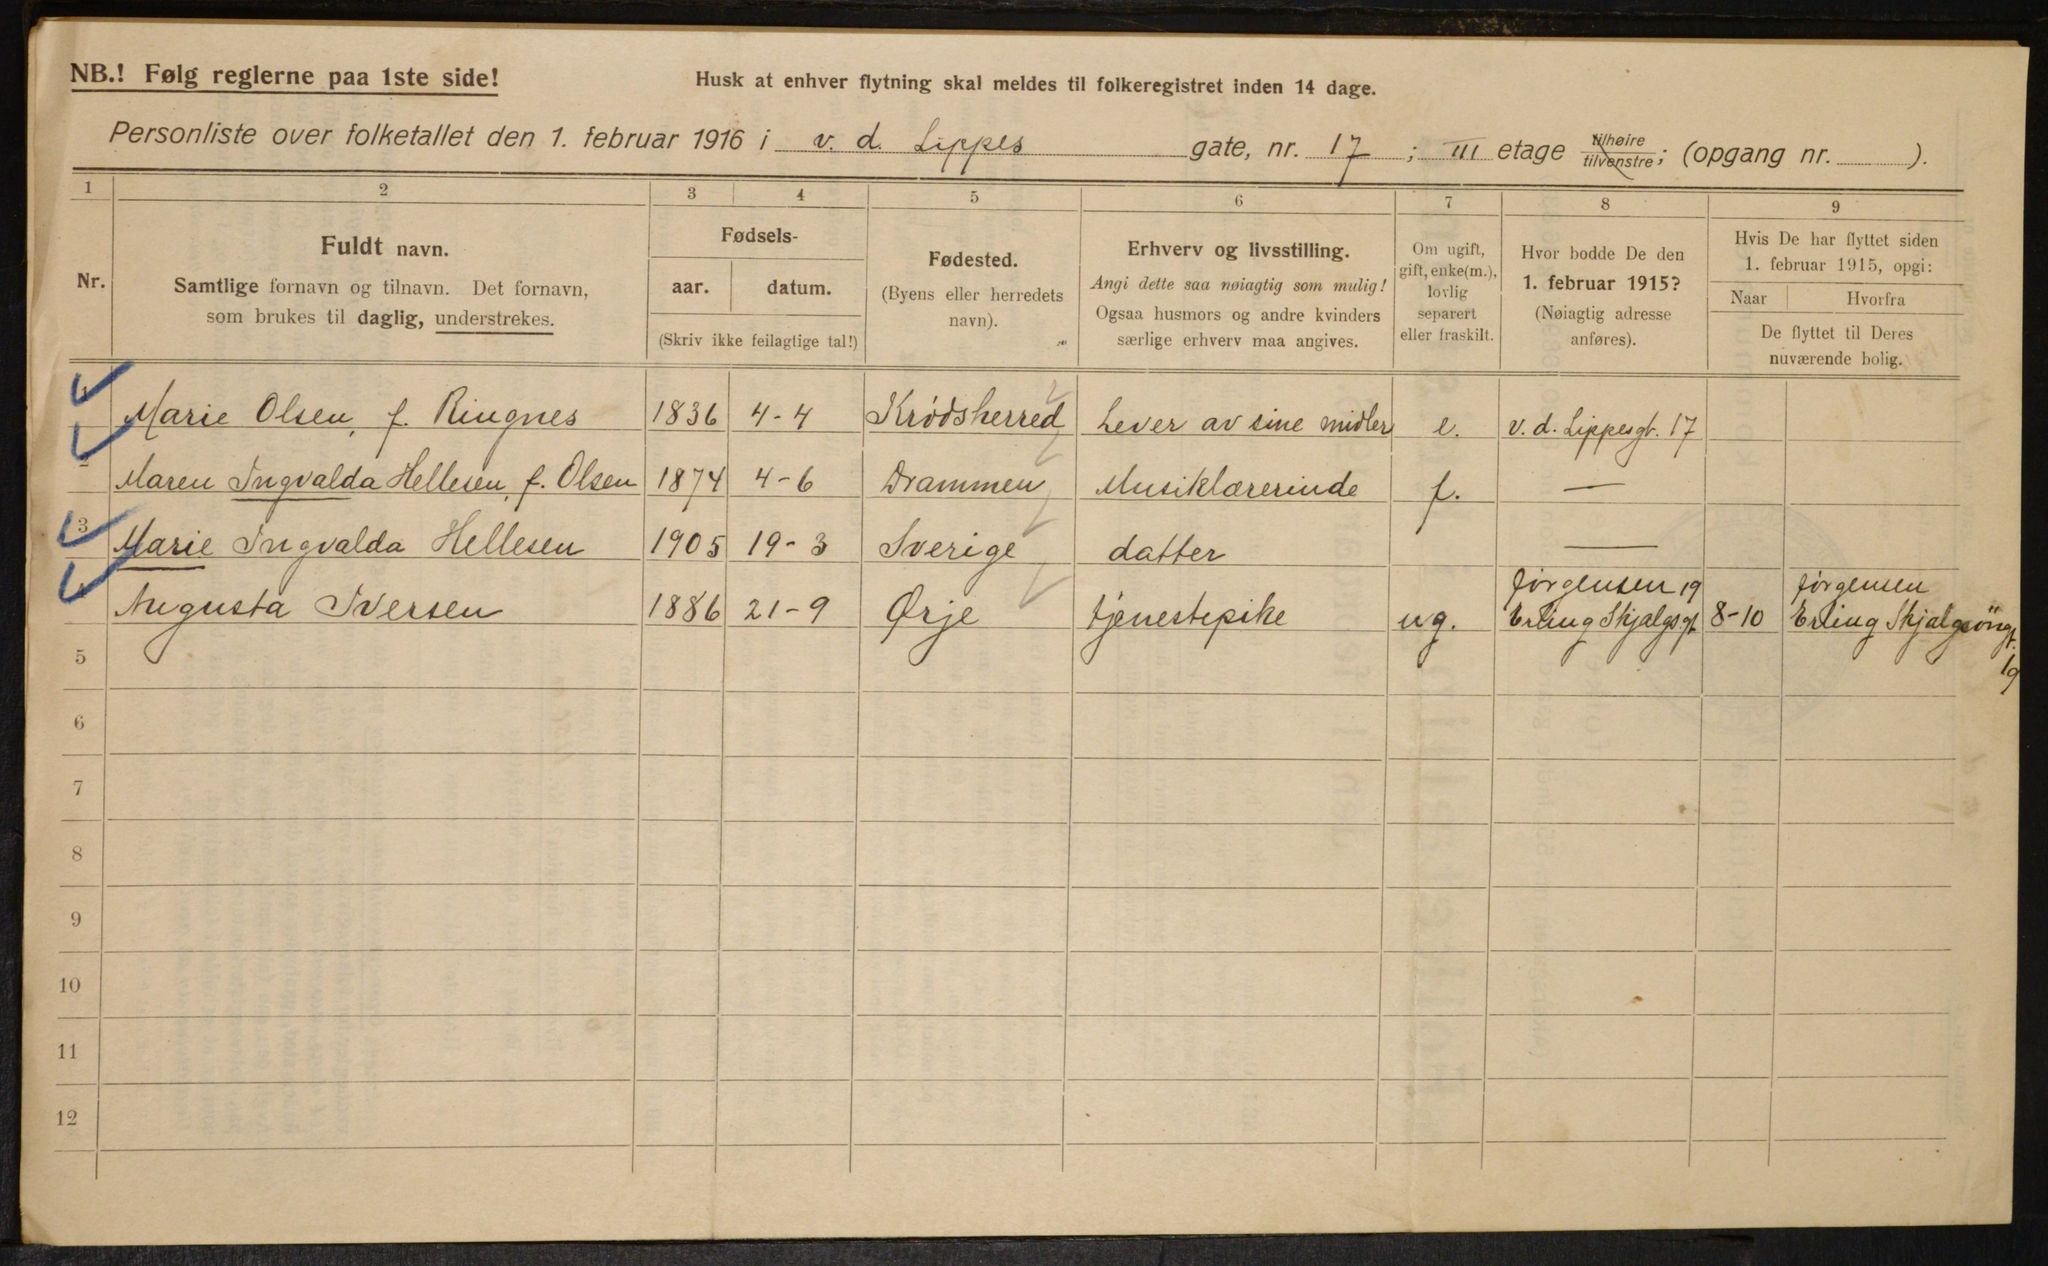 NB.! Følg reglerne paa 1ste side!
Husk at enhver flytning skal meldes til folkeregistret inden 14 dage.
Personliste over folketallet den 1. februar 1916 i v. d. Lippes gate, nr. 17; III etage tilhøire tilvenstre; (opgang nr. ).
1 2 3 4 5 6 7 8 9
Nr.
Fuldt navn.
Samtlige fornavn og tilnavn. Det fornavn,
som brukes til daglig, understrekes.
Fødsels-
aar. datum.
(Skriv ikke feilagtige tal!)
Fødested.
(Byens eller herredets
navn).
Erhverv og livsstilling.
Angi dette saa nøiagtig som mulig!
Ogsaa husmors og andre kvinders
særlige erhverv maa angives.
Om ugift,
gift, enke(m.),
lovlig
separert
eller fraskilt.
Hvor bodde De den
1. februar 1915?
(Nøiagtig adresse
anføres).
Hvis De har flyttet siden
1. februar 1915, opgi:
Naar Hvorfra
De flyttet til Deres
nuværende bolig.
1 Marie Olsen, f. Ringnes 1836 4-4 Krødsherred Lever av sine midler e. v. d. Lippesgt. 17
2 Maren Ingvalda Hellesen, f. Olsen 1874 4-6 Drammen Musiklærerinde f. —
3 Marie Ingvalda Hellesen 1905 19-3 Sverige datter —
Jørgensen 19 Jørgensen
4 Augusta Iversen 1886 21-9 Ørje tjenestepike ug. Erling Skjalgsgt. 8-10 Erling Skjalgsöngt.
19
5
6
7
8
9
10
11
12